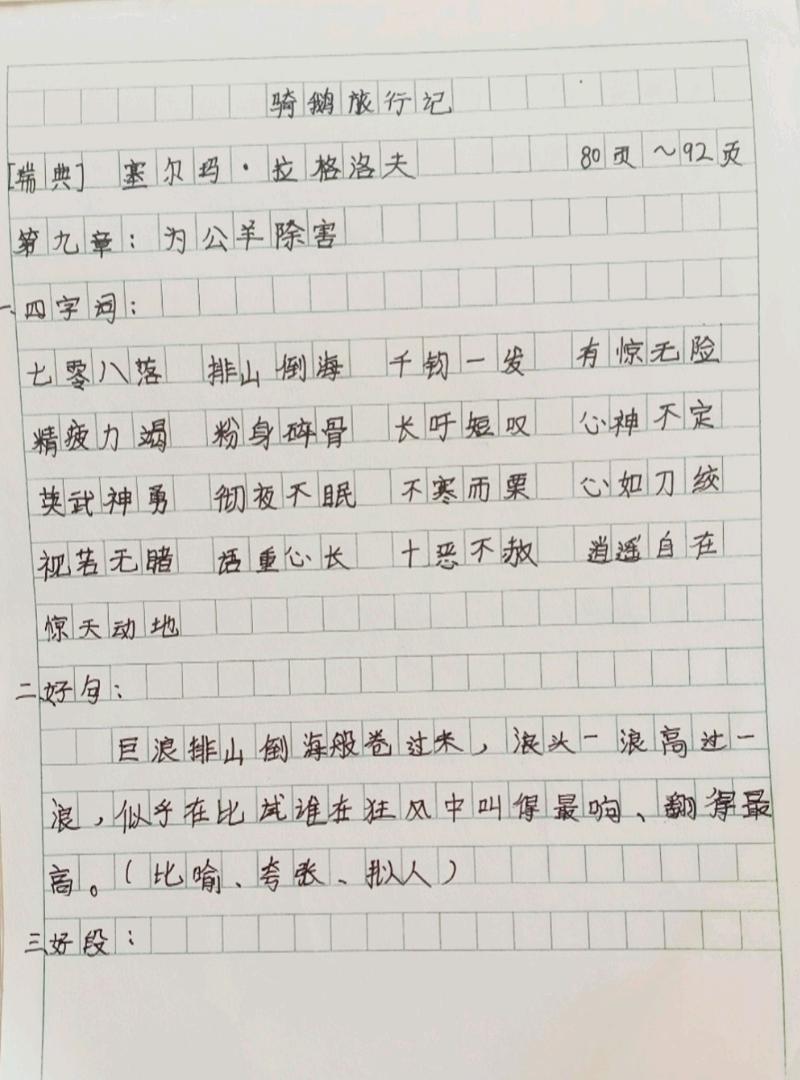 骑鹅旅行记
[瑞典] 塞尔玛·拉格洛夫 80页~92页
第九章：为公羊除害
一、四字词：
七零八落 排山倒海 千钧一发 有惊无险
精疲力竭 粉身碎骨 长吁短叹 心神不定
英武神勇 彻夜不眠 不寒而栗 心如刀绞
视若无睹 语重心长 十恶不赦 逍遥自在
惊天动地
二、好句：
巨浪排山倒海般卷过来，浪头一浪高过一
浪，似乎在比试谁在狂风中叫得最响、翻得最
高。（比喻、夸张、拟人）
三、好段：